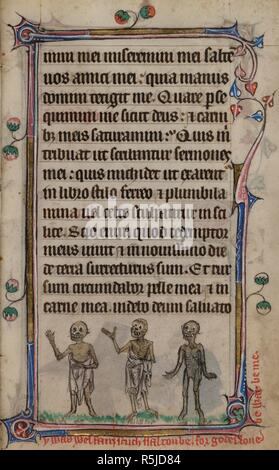 mini mei miseremini mei salte
uos amici mei: quia manus
domini tetigit me. Quare pse
quimini me sicut deus: & carni
bz meis saturamini: Quis mi
tribuat ut scribantur sermones
mei: quis michi det ut exarent
in libro stilo ferreo & plumbi la
mina uel celte sculpantur in sci
lice. Scio enim quod redemptor
meus uiuit & in nouissimo die
de terra surrecturus sum. Et rur
sum circumdabor pelle mea & in
carne mea uidebo deum saluato
y was wel fair such shal tou be. for godes loue
be war be me.
alamy - R5JD84